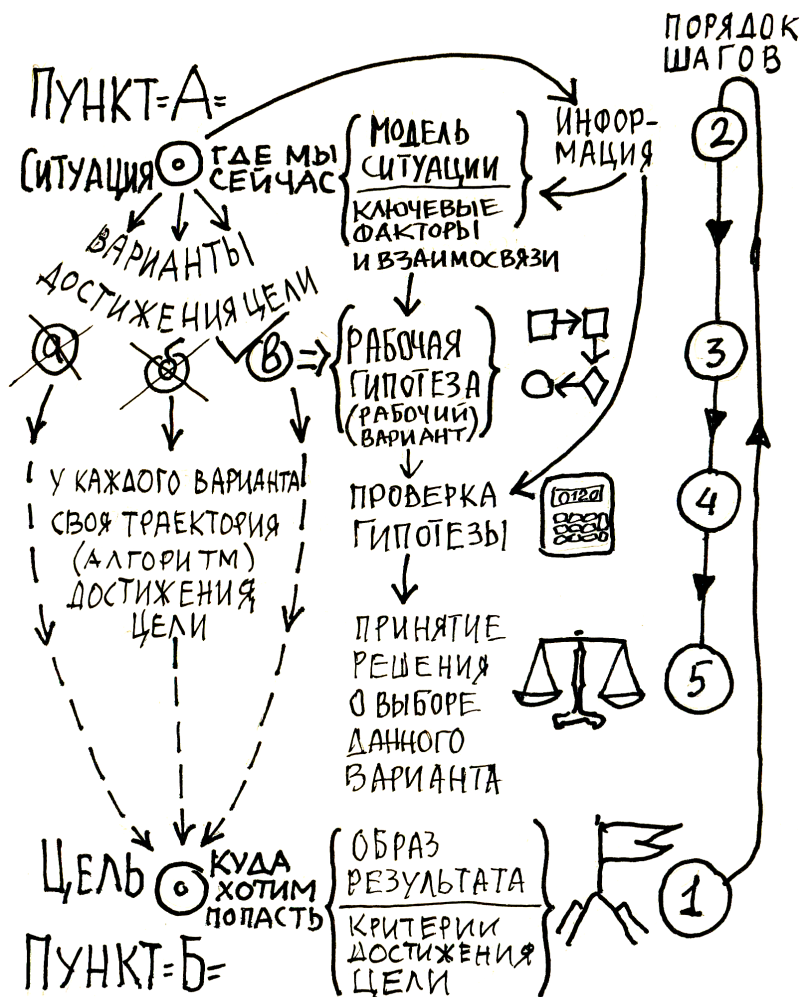 ПОРЯДОК
ШАГОВ
ПУНКТ=А=
СИТУАЦИЯ
ГДЕ МЫ
СЕЙЧАС
МОДЕЛЬ
СИТУАЦИИ
КЛЮЧЕВЫЕ
ФАКТОРЫ
И ВЗАИМОСВЯЗИ
ИНФОР-
МАЦИЯ
2
ВАРИАНТЫ
ДОСТИЖЕНИЯ ЦЕЛИ
а
б
в
РАБОЧАЯ
ГИПОТЕЗА
(РАБОЧИЙ
ВАРИАНТ)
3
У КАЖДОГО ВАРИАНТА
СВОЯ ТРАЕКТОРИЯ
(АЛГОРИТМ)
ДОСТИЖЕНИЯ
ЦЕЛИ
ПРОВЕРКА
ГИПОТЕЗЫ
0120
4
ПРИНЯТИЕ
РЕШЕНИЯ
О ВЫБОРЕ
ДАННОГО
ВАРИАНТА
5
ЦЕЛЬ
КУДА
ХОТИМ
ПОПАСТЬ
ОБРАЗ
РЕЗУЛЬТАТА
КРИТЕРИИ
ДОСТИЖЕНИЯ
ЦЕЛИ
1
ПУНКТ=Б=